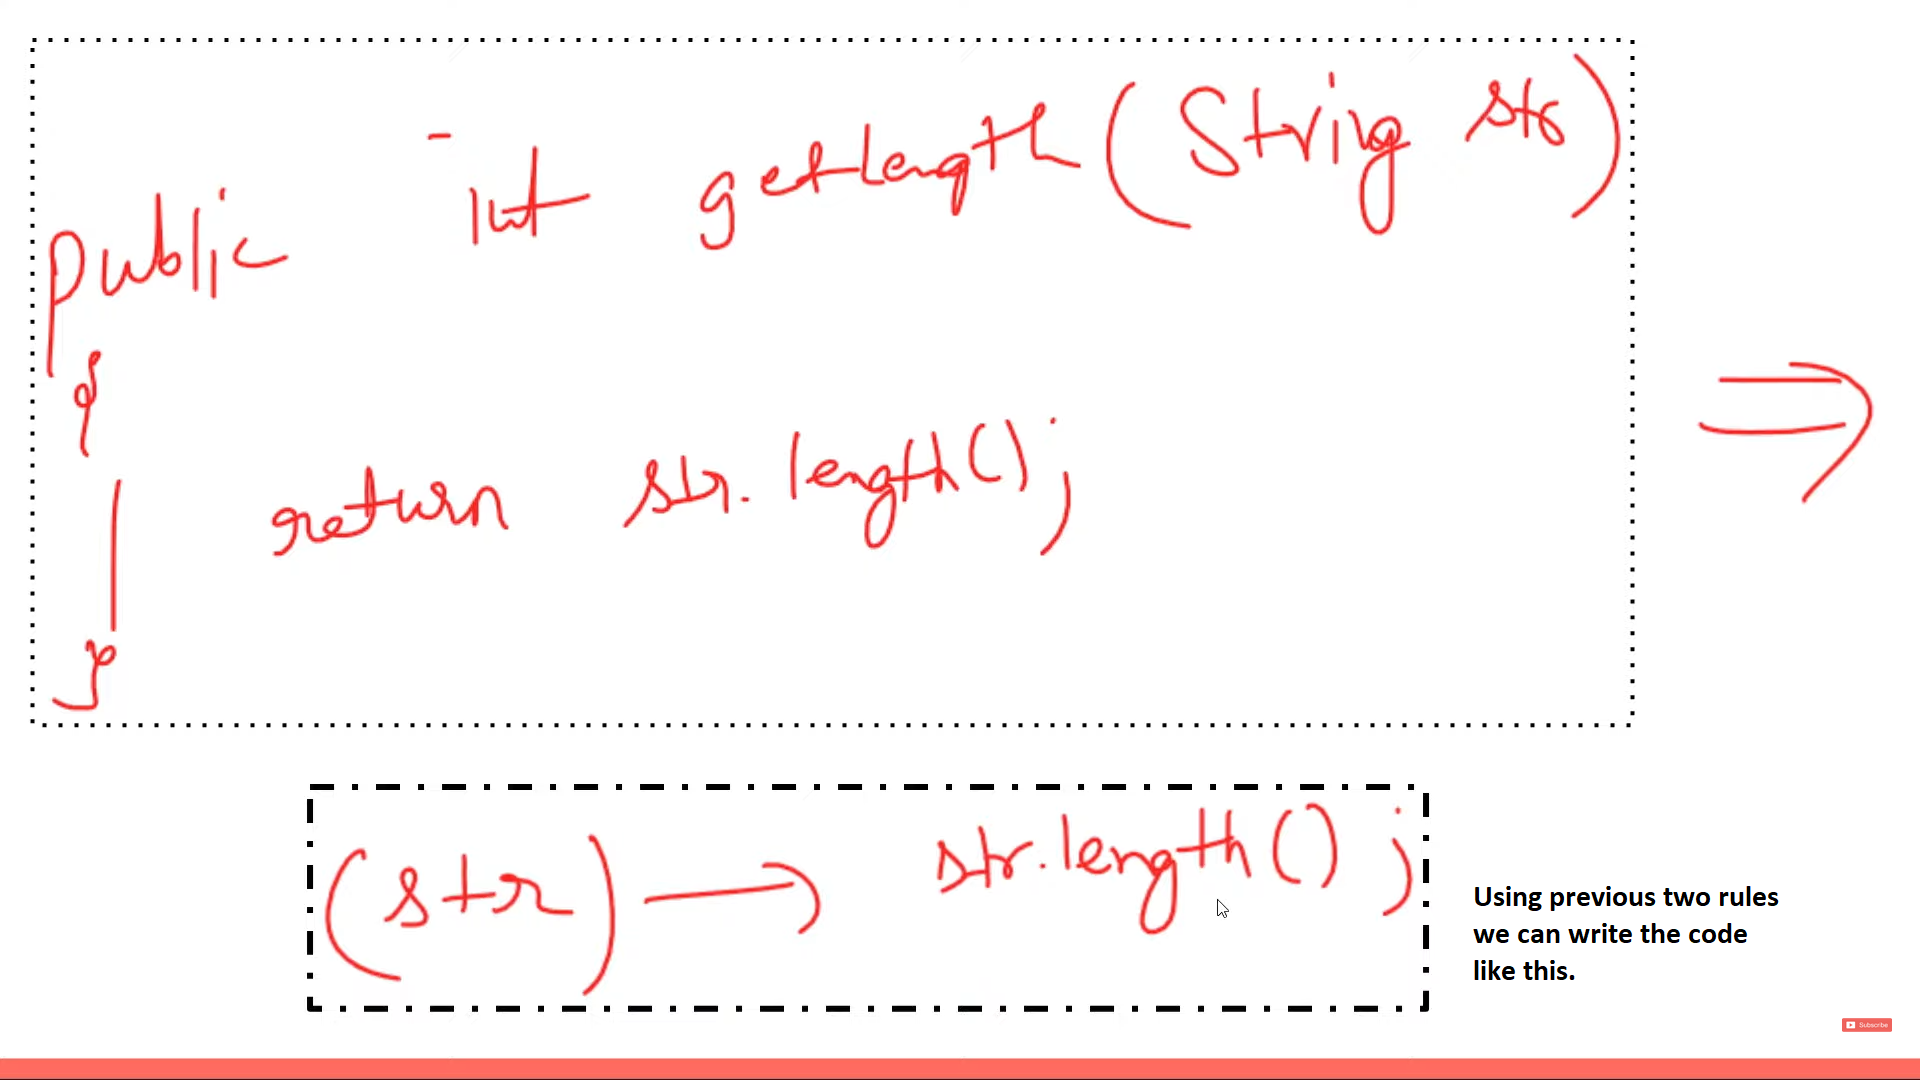 public int getLength(String str)
{
return str.length();
}
(str) → str.length();
Using previous two rules
we can write the code
like this.
Subscribe